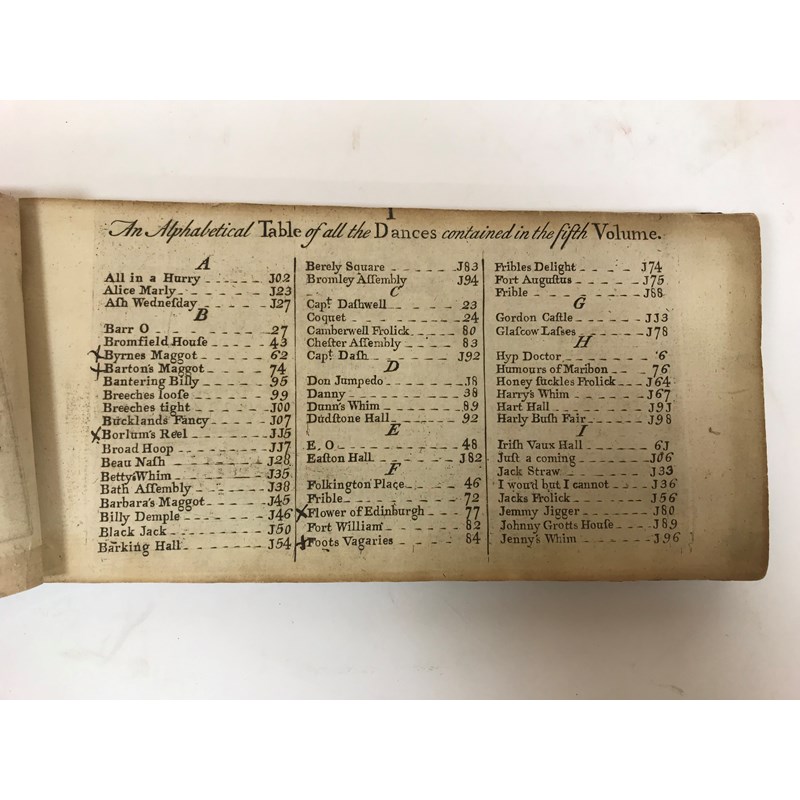 1
An Alphabetical Table of all the Dances contained in the fifth Volume.
A
All in a Hurry J02
Alice Marly J23
Aſh Wedneſday J27
B
Barr O 27
Bromfield Houſe 43
x Byrnes Maggot 62
x Barton's Maggot 74
Bantering Billy 95
Breeches looſe 99
Breeches tight J00
Bucklands Fancy J07
x Borlum's Reel JJ5
Broad Hoop JJ7
Beau Naſh J28
Betty's Whim J35
Bath Aſſembly J38
Barbara's Maggot J45
Billy Demple J46
Black Jack J50
Barking Hall J54
Berely Square J83
Bromley Aſſembly J94
C
Capt. Daſhwell 23
Coquet 24
Camberwell Frolick 80
Cheſter Aſſembly 83
Capt. Daſh J92
D
Don Jumpedo J8
Danny 38
Dunn's Whim 89
Dudſtone Hall 92
E
E. O 48
Eaſton Hall J82
F
Folkington Place 46
Frible 72
x Flower of Edinburgh 77
Fort William 82
x Foots Vagaries 84
Fribles Delight J74
Fort Auguſtus J75
Frible J88
G
Gordon Caſtle JJ3
Glaſcow Laſſes J78
H
Hyp Doctor 6
Humours of Maribon 76
Honey ſuckles Frolick J64
Harry's Whim J67
Hart Hall J9J
Harly Buſh Fair J98
I
Iriſh Vaux Hall 6J
Juſt a coming J06
Jack Straw J33
I wou'd but I cannot J36
Jacks Frolick J56
Jemmy Jigger J80
Johnny Grotts Houſe J89
Jenny's Whim J96